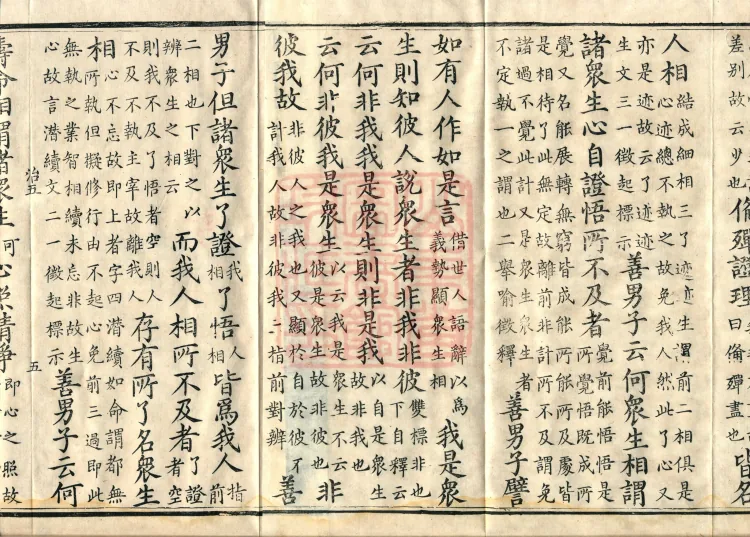 差别故云少也脩殫證理曰脩殫盡也皆名
人相結成細相三了迹迹生謂前二相俱是
心迹總不執之故免我人然此了心又
亦是迹故云了迹迹
生文三一徵起標示善男子云何衆生相謂
諸衆生心自證悟所不及者覺前能悟悟是
所覺悟既成所
覺又名能展轉無窮皆成能所所不及處皆
是相待了此無定故離前非計所不及謂免
諸過不覺此計又是衆生衆生者
不定執一之謂也二舉喻徵釋善男子譬
如有人作如是言借世人語辭以爲
義勢顯衆生相我是衆
生則知彼人説衆生者非我非彼雙標非也
下自釋云
云何非我我是衆生則非是我以自是衆生
故非我也
云何非彼我是衆生以云我是衆生不云
彼是衆生故非彼也非
彼我故非彼人之我也又顯於自於彼不
計我人故非彼我二指前對辨善
男子但諸衆生了證我相了悟人相皆爲我人指前
二相也下對之以
辨衆生之相云而我人相所不及者了證者空
則我不及了悟者空則人
不及不執主宰故離我人存有所了名衆生
相心不忘故即上者字四潛續如命謂都無
相所執但擬修行由不起心免前三過即此
無執之業智相續未忘非故生
心故言潛續文二一徵起標示善男子云何
治五
五